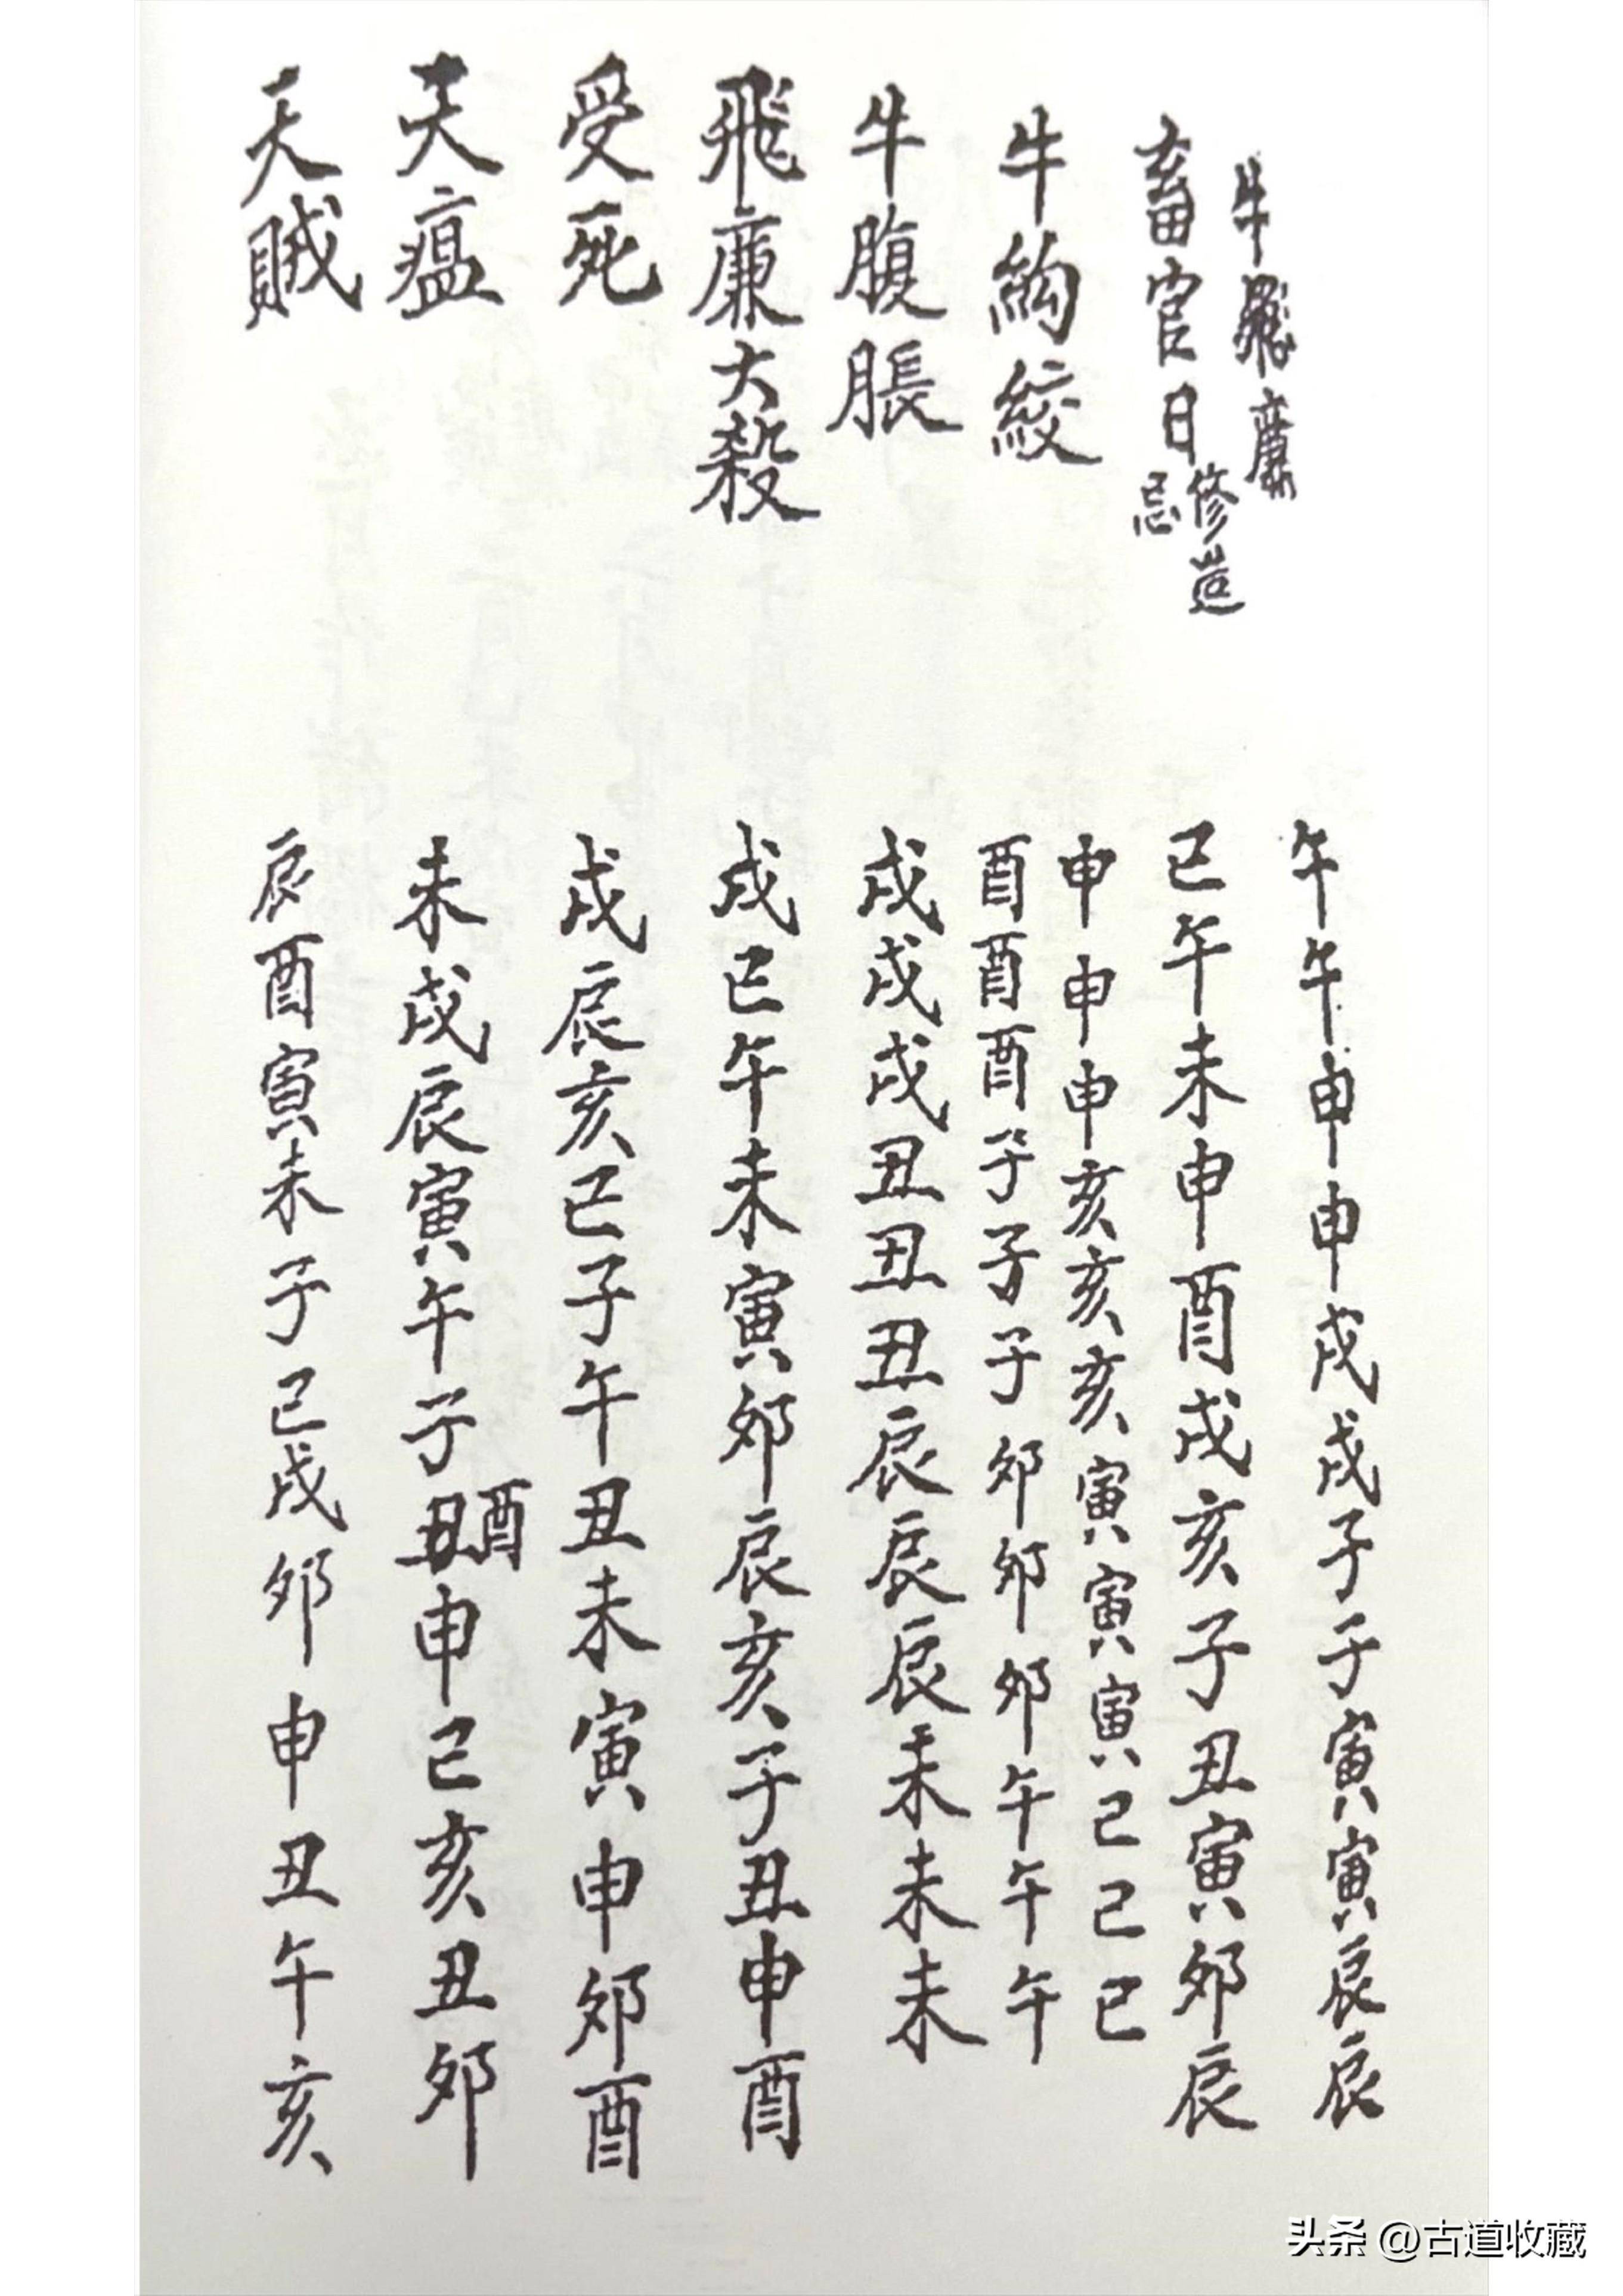 牛飛廉 午午申申戌戌子子寅寅辰辰
畜官日修造忌 巳午未申酉戌亥子丑寅卯辰
牛絇絞 申申申亥亥亥寅寅寅巳巳巳
酉酉酉子子子卯卯卯午午午
牛腹脹 戌戌戌丑丑丑辰辰辰未未未
飛廉大殺 戌巳午未寅卯辰亥子丑申酉
受死 戌辰亥巳子午丑未寅申卯酉
天瘟 未戌辰寅午子酉申巳亥丑卯
天賊 辰酉寅未子巳戌卯申丑午亥
头条 @古道收藏